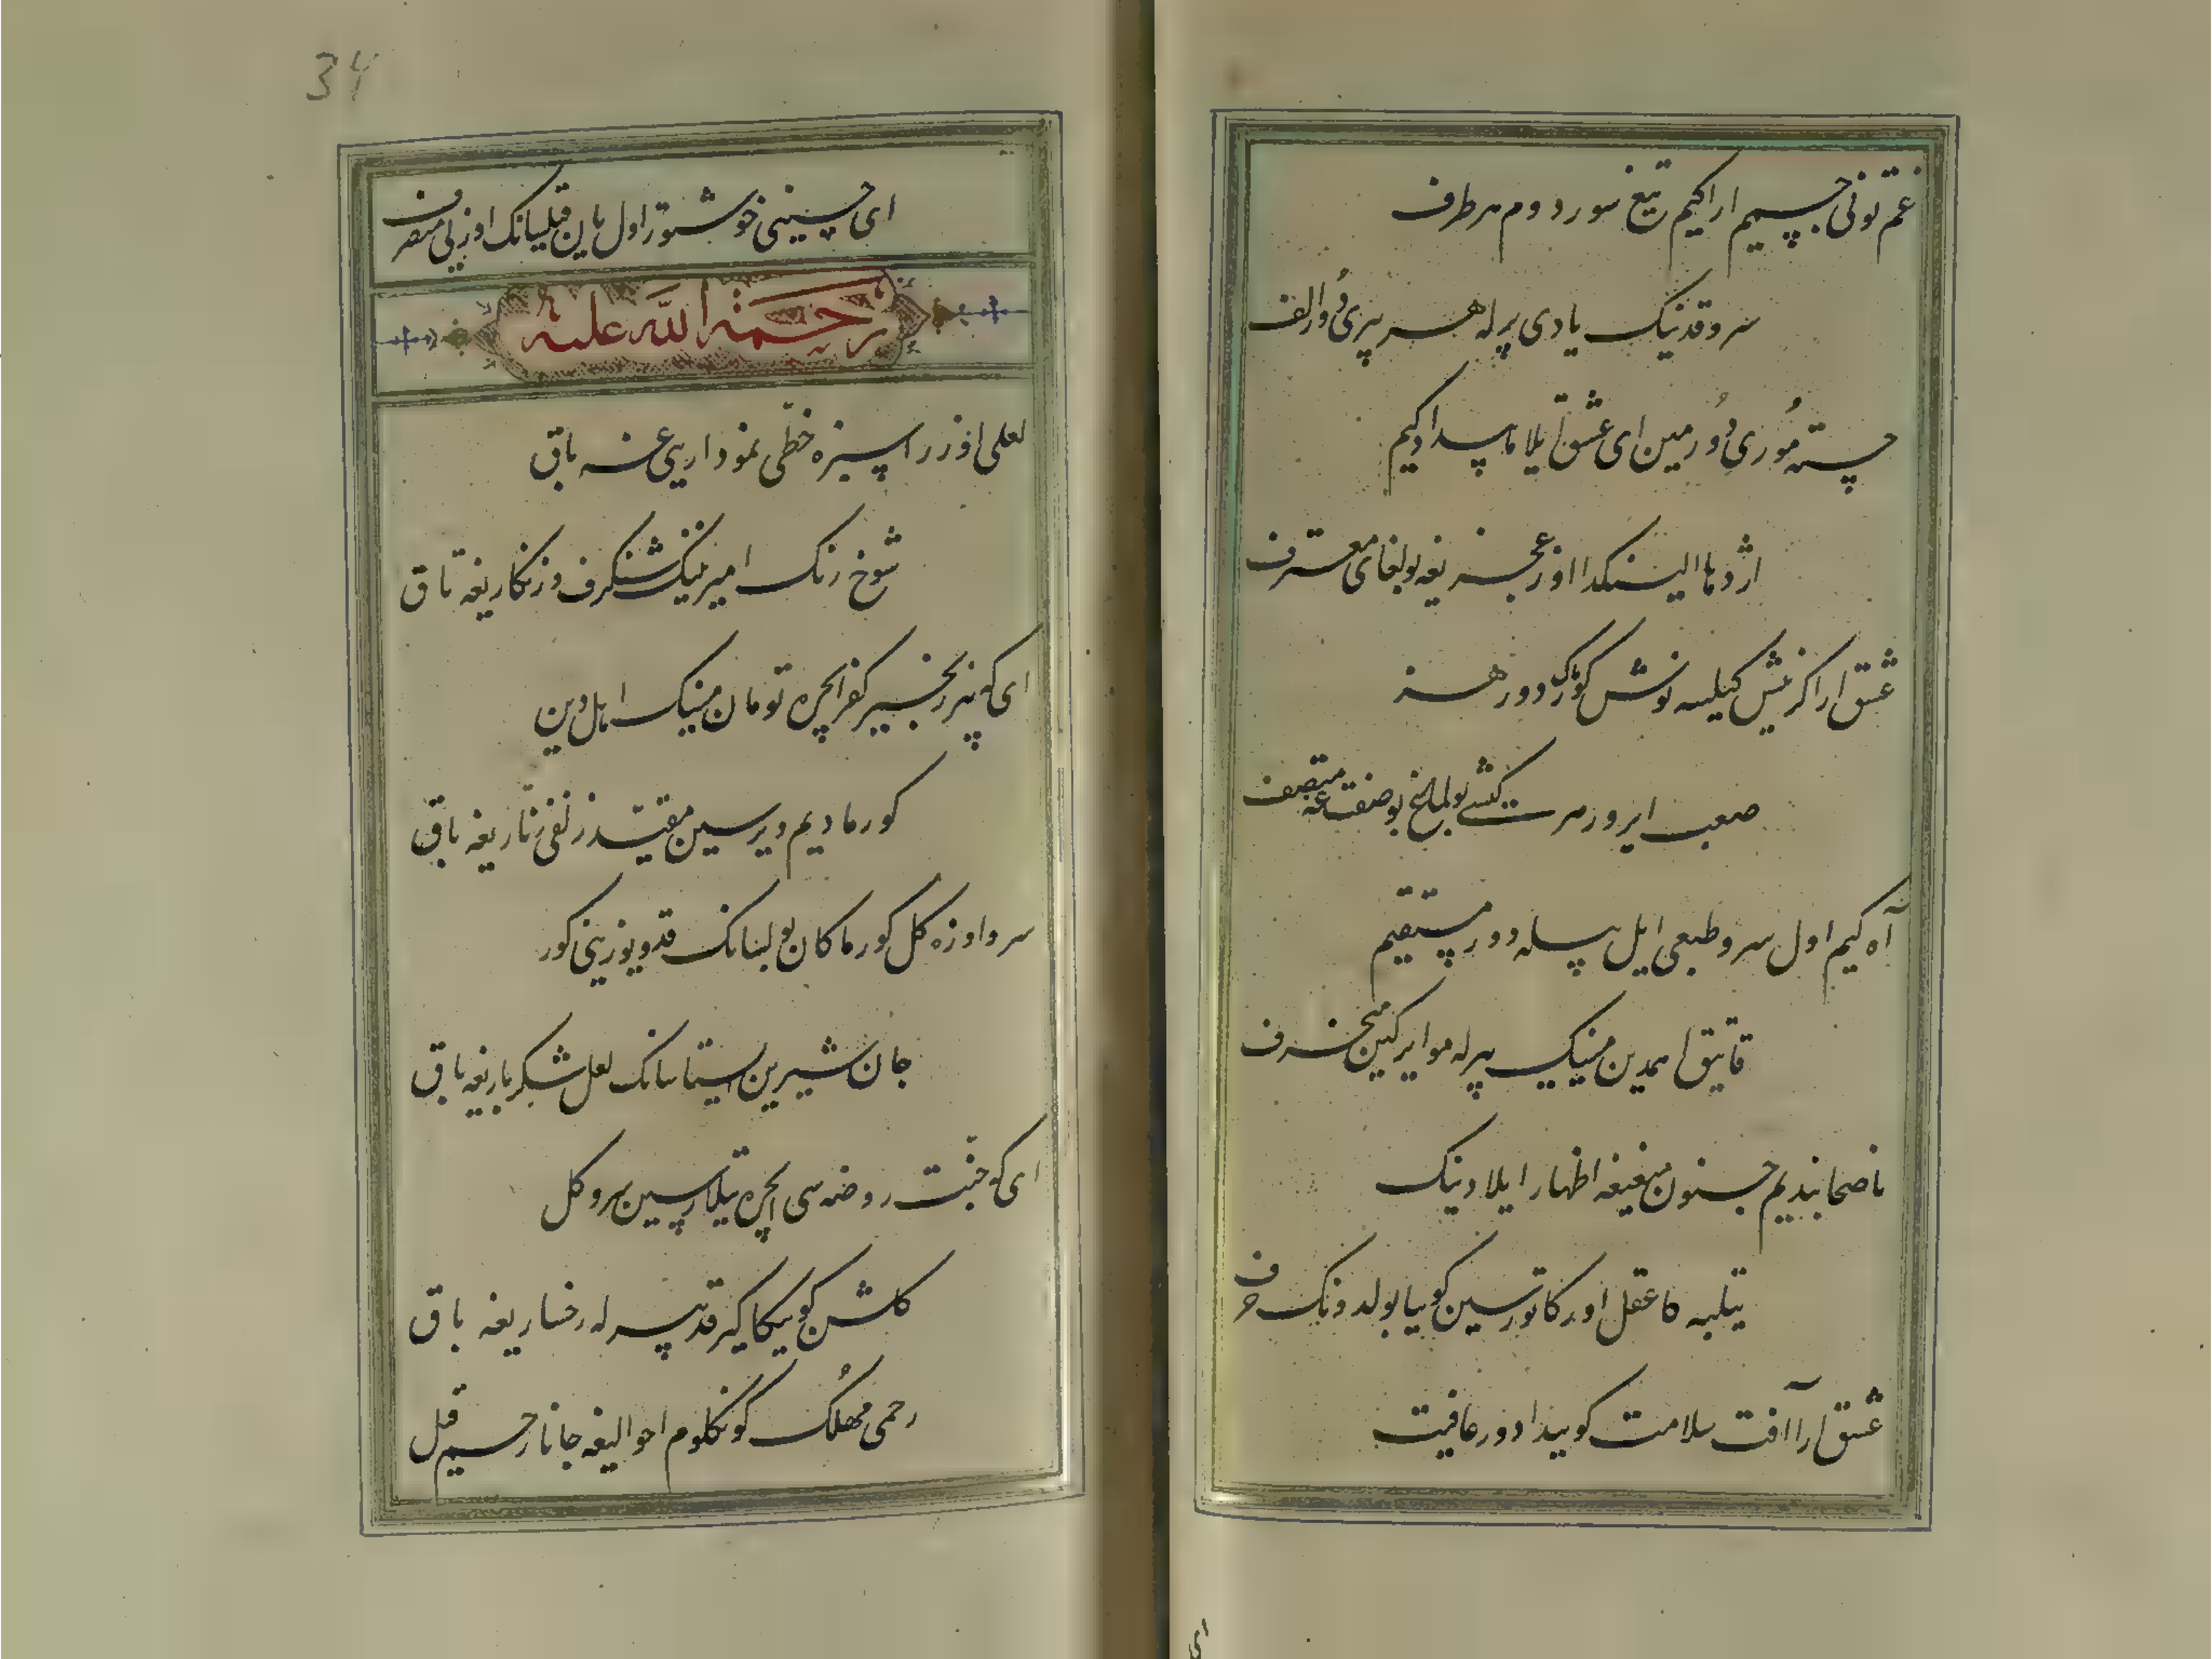 غم تونی جسمیم ارا کیم تیغ سوردوم هر طرف
سرو قدنینک یادی بیرله هر بیری دُور الف
خسته مُوری دُورمین ای عشق ایلا ماپیدا کیم
اژدها الیندا اوز عجزیغه بولغای معترف
عشق ارا کر نیش کیلسه نوش کورماک دور هنر
صعب ایرور هر کشی بولماغ بو صفتغه متصف
آه کیم اول سرو طبعی ایل بیله دور مستقیم
قایق اهمدین مینینک بیرله مو ایرکین منحرف
ناصحا بندیم جنون مینغه اظهار ایلادینک
تیلبه کا عقل اورکاتورسین کوییا بولدونک خرف
عشق ارا آفت سلامت کوییدا دور عافیت
ای
34
ای حسینی خوشتور اول یان قیلسانک اوزنی منصرف
رحمة الله علیه
لعلی اوزرا سبزه خطی نموداریغه باق
شوخ رنک امیزنینک شنکرف و زنکاریغه باق
ای که بیر زنجیر کفر ایچره تومان مینک اهل دین
کورمادیم دیرسین مقید زلفی تاریغه باق
سرو اوزه کل کورماکان بولسانک قد و یوزینی کور
جان شیرین ایستاسانک لعل شکر باریغه باق
ای که جنت روضه سی ایچره تیلارسین سرو کل
کلشن کوییکا کیر قد بیرله رخساریغه باق
رحمی مهلک کونکلوم احوالیغه جانا رحم قیل